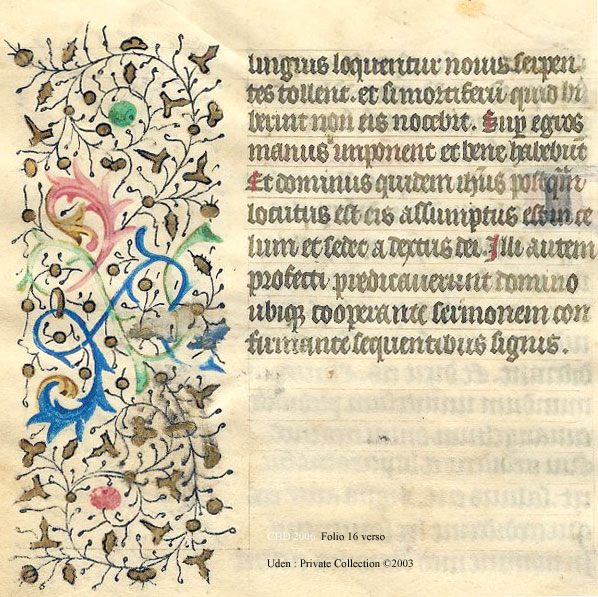 linguis loquentur nouis serpen
tes tollent. et si mortiferũ quid bi
berint non eis nocebit. Suꝑ egros
manus imponent et bene habebũt
Et dominus quidem ihũs postquã
locutus est eis assumptus est in ce
lum et sedet a dextris dei. Illi autem
profecti predicauerunt domino
ubiqꝫ cooperante sermonem con
firmante sequentibus signis.
Folio 16 verso
Uden : Private Collection ©2003